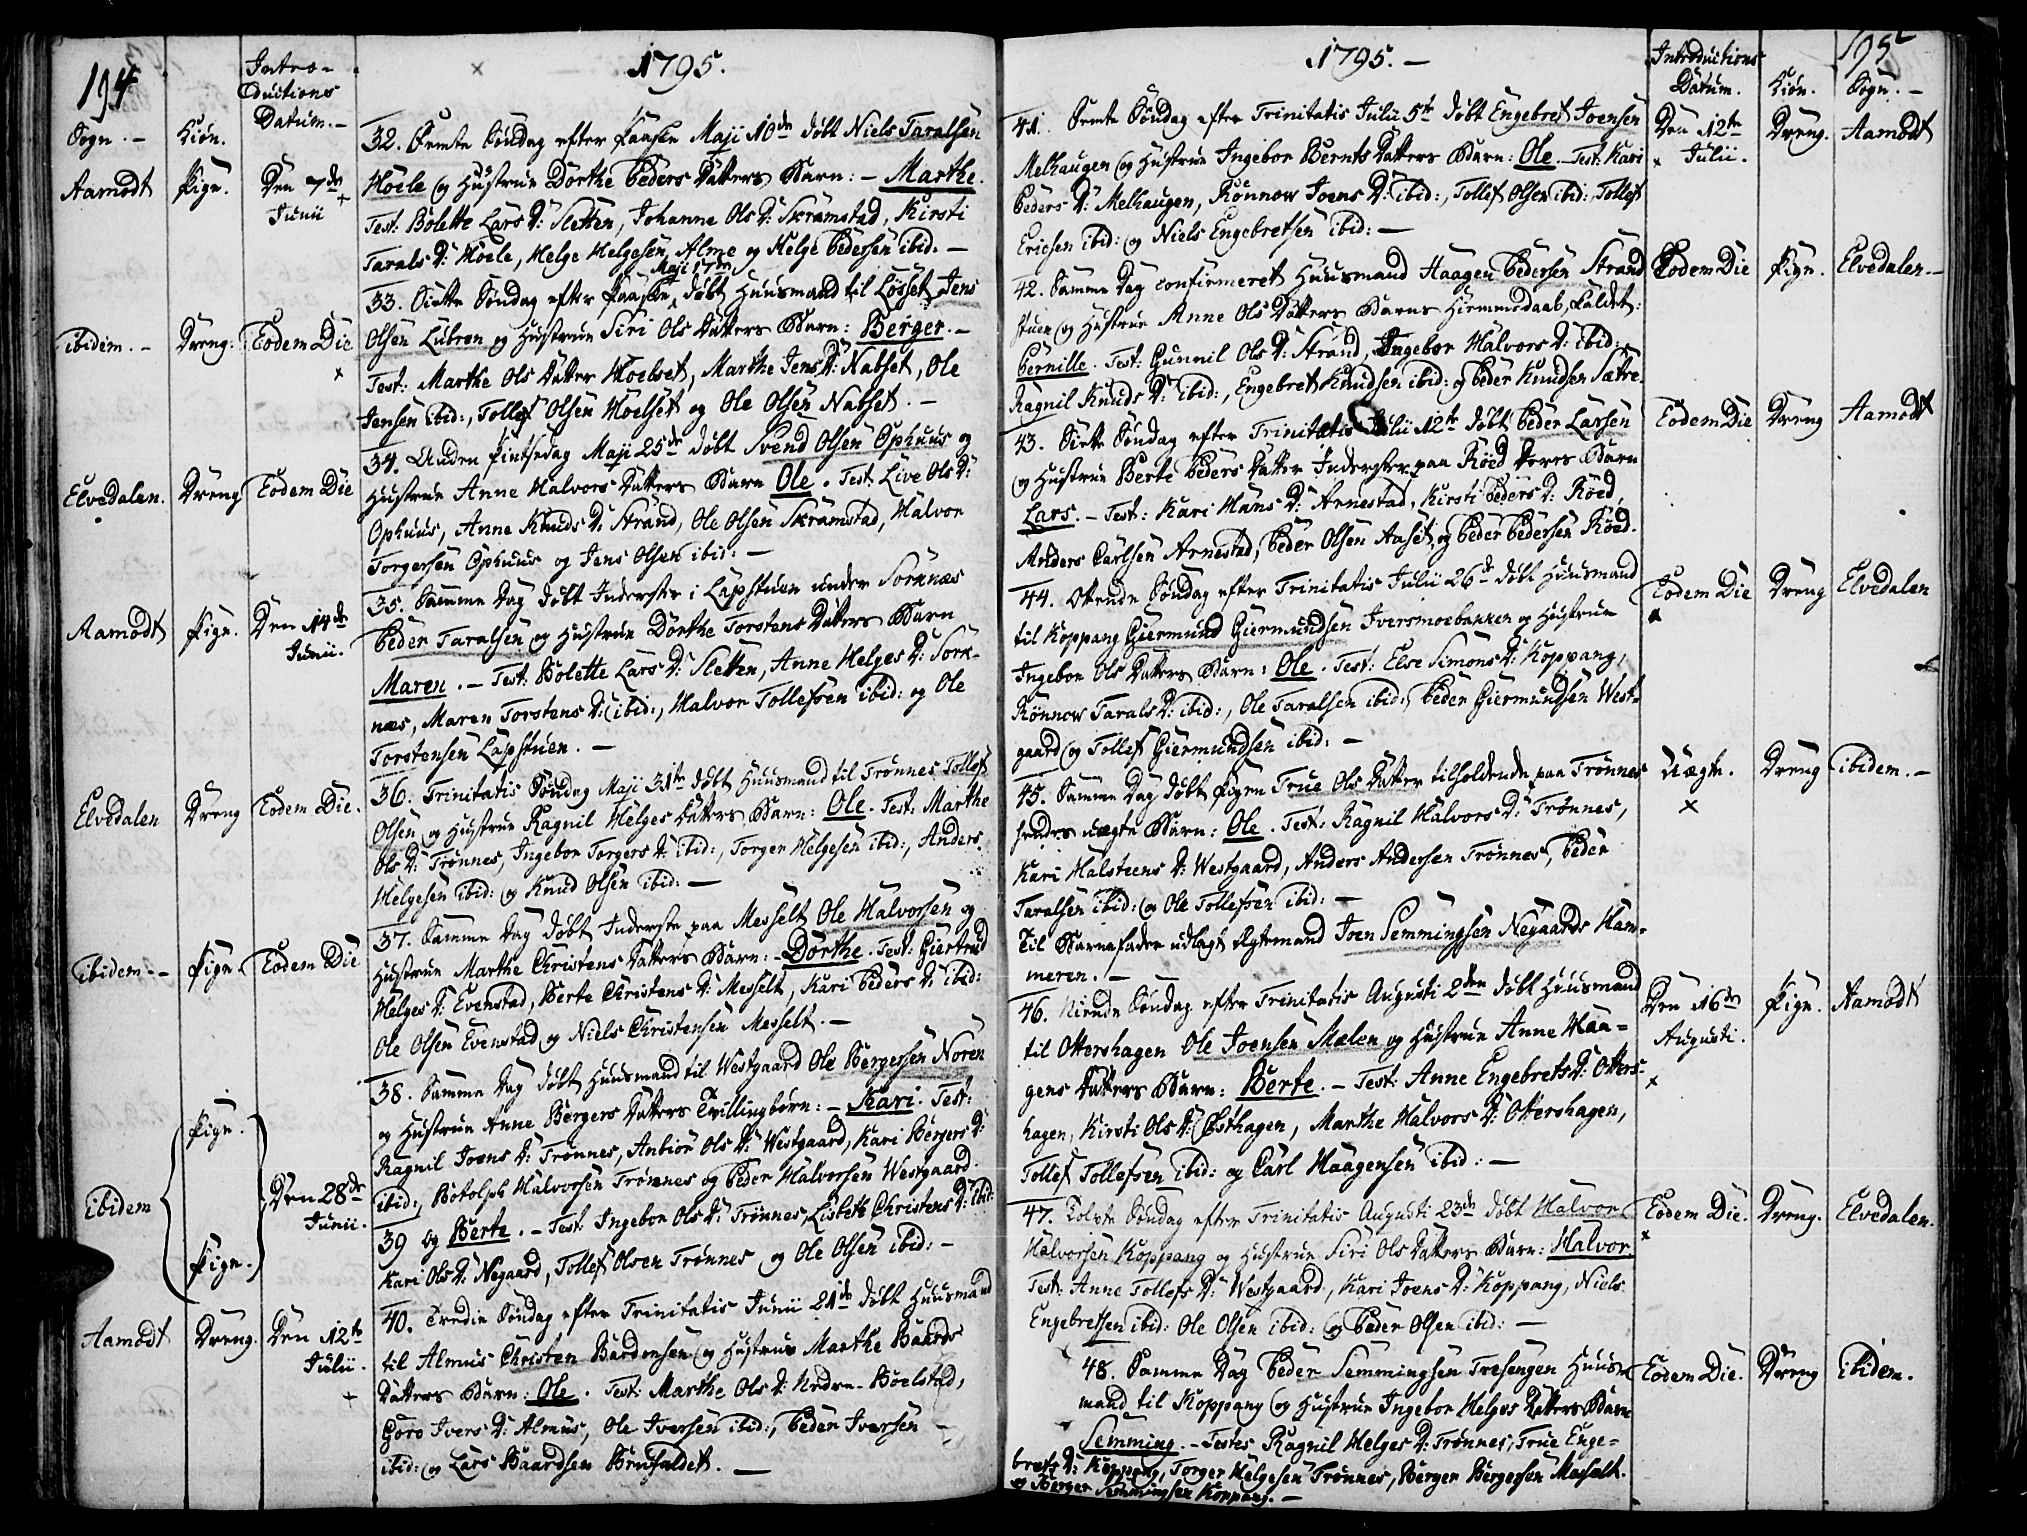 194
1795.
Intro-
ductions
Datum.-
Sogn.- Kiön.
Aamodt Pige. Den 7de
Junii
32. Femte Söndag efter Paaske Maji 10de döbt Niels Taralsen
Hoele og Hustrue Dorthe Peders Datters Barn: - Marthe.
Test: Bolette Lars D: Sletten, Johanne Ols D: Skramstad, Kirsti
Tarals D: Hoele, Helge Helgesen Alme og Helge Pedersen ibid: -
Maji 17de
ibidem.- Dreng. Eodem Die
33. Siette Söndag efter Paaske, döbt Huusmand til Lösset Jens
Olsen Lübron og Hustrue Siri Ols Datters Barn: Berger.-
Test: Marthe Ols Datter Hoelset, Marthe Jens D: Nabset, Ole
Jensen ibid:, Tollef Olsen Hoelset og Ole Olsen Nabset.-
Elvedalen. Dreng Eodem Die
34. Anden Pintsedag Maji 25de döbt Svend Olsen Ophuus og
Hustrue Anne Halvors Datters Barn Ole. Test: Live Ols D:
Ophuus, Anne Knuds D: Strand, Ole Olsen Skramstad, Halvor
Torgersen Ophuus og Jens Olsen ibid: -
Aamodt Pige. Den 14de
Junii.
35. Samme Dag döbt Inderster i Lapstuen under Sorknæs
Peder Taralsen og Hustrue Dorthe Torstens Datters Barn
Maren.- Test: Bolette Lars D: Sletten, Anne Helges D: Sork-
næs, Maren Torstens D: ibid:, Halvor Tollefsen ibid: og Ole
Torstensen Lapstuen.-
Elvedalen Dreng Eodem Die.
36. Trinitatis Söndag Maji 31te döbt Huusmand til Trönnes Tollef
Olsen og Hustrue Ragnil Helges Datters Barn: Ole. Test: Marthe
Ols D: Trönnes, Ingebor Torgers D: ibid:, Torger Helgesen ibid:, Anders
Helgesen ibid: og Knud Olsen ibid: -
ibidem.- Pige. Eodem Die
37. Samme Dag döbt Inderste paa Messelt Ole Halvorsen og
Hustrue Marthe Christens Datters Barn: - Dorthe. Test: Giertrud
Helges D: Evenstad, Berte Christens D: Messelt, Kari Peders D: ibid:
Ole Olsen Evenstad og Niels Christensen Messelt.-
ibidem Pige.
Pige.
Den 28de
Junii.
38. Samme Dag döbt Huusmand til Westgaard Ole Bergersen Noren
og Hustrue Anne Bergers Datters Tvillingbörn: - Kari. Test:
Ragnil Joens D: Trönnes, Anbiör Ols D: Westgaard, Kari Bergers D:
ibid:, Botolph Halvorsen Trönnes og Peder Halvorsen Westgaard.
39 og Berte.- Test: Ingebor Ols D: Trönnes, Lisbeth Christens D: ibid:
Kari Ols D: Negaard, Tollef Olsen Trönnes og Ole Olsen ibid: -
Aamodt Dreng. Den 12te
Julii.
40. Tredie Söndag efter Trinitatis Junii 21de döbt Huusmand
til Almus Christen Bardonsen og Hustrue Marthe Baards
Datters Barn: Ole. Test: Marthe Ols D: Nedre-Böelstad,
Goro Ivers D: Almus, Ole Iversen ibid:, Peder Iversen
ibid: og Lars Baardsen Brufaldet.-
195
1795.-
Introductions
Datum. Kiön. Sogn.-
41. Femte Söndag efter Trinitatis Julii 5te döbt Engebret Joensen
Melhaugen og Hustrue Ingebor Bernts Datters Barn: Ole. Test: Kari
Peders D: Melhaugen, Rönnow Joens D: ibid:, Tollef Olsen ibid:, Tollef
Ericsen ibid: og Niels Engebretsen ibid: -
Den 12te
Julii. Dreng. Aamodt
42. Samme Dag confirmeret Huusmand Haagen Pedersen Strand
stuen og Hustrue Anne Ols Datters Barns Hiemmedaab, kaldet:
Pernille. Test: Gunnil Ols D: Strand, Ingebor Halvors D: ibid:
Ragnil Knuds D: ibid:, Engebret Knudsen ibid: og Peder Knudsen Sætre.
Eodem Die Pige. Elvedalen.-
43. Siette Söndag efter Trinitatis Julii 12te döbt Peder Larsen
og Hustrue Berte Peders Datter Inderster paa Röed deres Barn
Lars.- Test: Kari Hans D: Arnestad, Kirsti Peders D: Röed,
Anders Carlsen Arnestad, Peder Olsen Aaset og Peder Pedersen Röed.
Eodem Die Dreng Aamodt
44. Ottende Söndag efter Trinitatis Julii 26te döbt Huusmand
til Koppang Giermund Giermundsen Iversmoebakken og Hustrue
Ingebor Ols Datters Barn: Ole. Test: Else Simons D: Koppang,
Rönnow Tarals D: ibid:, Ole Taralsen ibid:, Peder Giermundsen West-
gaard og Tollef Giermundsen ibid: -
Eodem Die Dreng Elvedalen
45. Samme Dag döbt Pigen True Ols Datter tilholdende paa Trönnes
hendes uægte Barn: Ole. Test: Ragnil Halvors D: Trönnes,
Kari Halsteens D: Westgaard, Anders Andersen Trönnes, Peder
Taralsen ibid: og Ole Tollefsen ibid: -
Til Barnefader udlagt Ægtemand Joen Semmingsen Negaards Ham-
meren.-
Uægte. Dreng ibidem.-
46. Niende Söndag efter Trinitatis Augusti 2den döbt Huusmand
til Ottershagen Ole Joensen Mælen og Hustrue Anne Haa-
gens Datters Barn: Berte.- Test: Anne Engebrets D: Otters-
hagen, Kirsti Ols D: Östhagen, Marthe Halvors D: Ottershagen,
Tollef Tollefsen ibid: og Carl Haagensen ibid: -
Den 16de
Augusti. Pige. Aamodt
47. Tolvte Söndag efter Trinitatis Augusti 23de döbt Halvor
Halvorsen Koppang og Hustrue Siri Ols Datters Barn: Halvor
Test: Anne Tollefs D: Westgaard, Kari Joens D: Koppang, Niels
Engebretsen ibid: Ole Olsen ibid: og Peder Olsen ibid: -
Eodem Die. Dreng. Elvedalen.
48. Samme Dag Peder Semmingsen Tresengen Huus-
mand til Koppang og Hustrue Ingebor Helges Datters Barn
Semming.- Testes Ragnil Helges D: Trönnes, True Enge-
brets D: Koppang, Torger Helgesen Trönnes, Berger Bergersen Messelt.
og Berger Semmingsen Koppang.-
Eodem Die. Dreng ibidem.